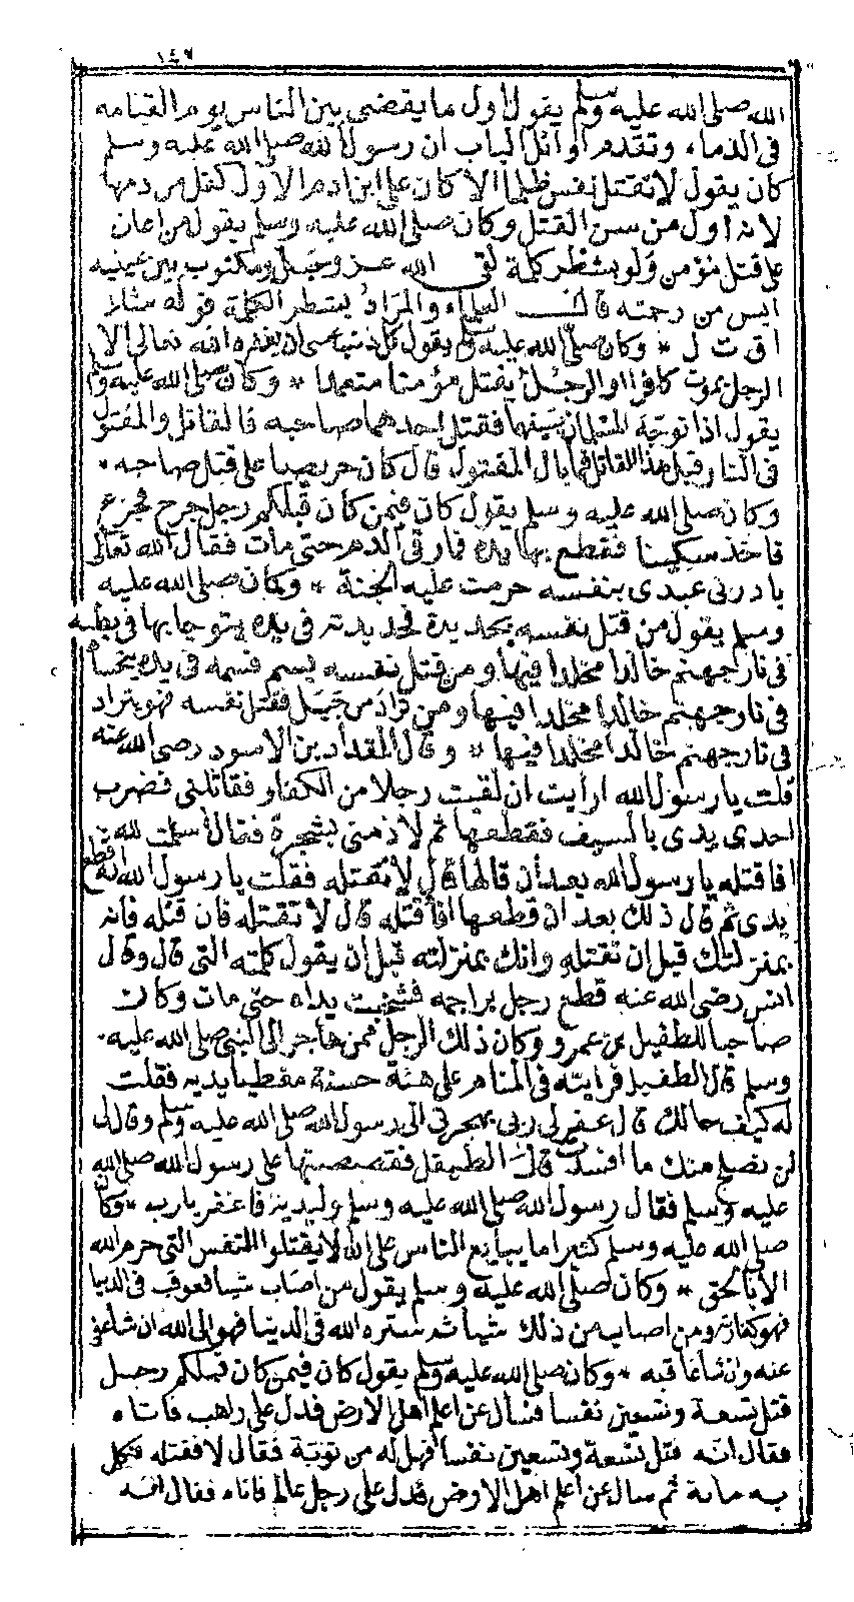 ١٤٧
الله صلى الله عليه وسلم يقول اول ما يقضى بين الناس يوم القيامه
فى الدماء وتقدم اوائل الباب ان رسول الله صلى الله عليه وسلم
كان يقول لا تقتل نفس ظلما الا كان على ابن ادم الاول كفل من دمها
لانه اول من سن القتل وكان صلى الله عليه وسلم يقول من اعان
على قتل مؤمن ولو بشطر كلمة لقى الله عز وجل ومكتوب بين عينيه
ايس من رحمته قال العلماء والمراد بشطر الكلمة قوله مثلا
ا ق ت ل * وكان صلى الله عليه وسلم يقول كل ذنب عسى ان يغفره الله تعالى الا
الرجل يموت كافرا او الرجل يقتل مؤمنا متعمدا * وكان صلى الله عليه وسلم
يقول اذا توجه المسلمان بسيفهما فقتل احدهما صاحبه فالقاتل والمقتول
فى النار قيل هذا القاتل فما بال المقتول قال كان حريصا على قتل صاحبه *
وكان صلى الله عليه وسلم يقول كان فيمن كان قبلكم رجل جرح فجزع
فاخذ سكينا فقطع بها يده فما رقى الدم حتى مات فقال الله تعالى
بادرنى عبدى بنفسه حرمت عليه الجنة * وكان صلى الله عليه
وسلم يقول من قتل نفسه بحديدة فحديدته فى يده يتوجا بها فى بطنه
فى نار جهنم خالدا مخلدا فيها ومن قتل نفسه بسم فسمه فى يده يتحساه
فى نار جهنم خالدا مخلدا فيها ومن تراد من جبل فقتل نفسه فهو يتراد
فى نار جهنم خالدا مخلدا فيها * وقال المقداد بن الاسود رضى الله عنه
قلت يا رسول الله ارايت ان لقيت رجلا من الكفار فقاتلنى فضرب
احدى يدى بالسيف فقطعها ثم لاذ منى بشجرة فقال اسلمت لله
افاقتله يا رسول الله بعد ان قالها قال لا تقتله فقلت يا رسول الله انه قطع
يدى ثم قال ذلك بعد ان قطعها افاقتله قال لا تقتله فان قتله فانه
بمنزلتك قبل ان تقتله وانك بمنزلته قبل ان يقول كلمته التى قال وقال
انس رضى الله عنه قطع رجل براجمه فشخبت يداه حتى مات وكان
صاحبا للطفيل بن عمرو وكان ذلك الرجل ممن هاجر الى النبى صلى الله عليه
وسلم قال الطفيل فرايته فى المنام على هئة حسنة مغطيا يديه فقلت
له كيف حالك قال غفر لى ربى بهجرتى الى رسول الله صلى الله عليه وسلم وقال لى
لن نصلح منك ما افسدت قال الطفيل فقصصتها على رسول الله صلى الله
عليه وسلم فقال رسول الله صلى الله عليه وسلم وليديه فاغفر يا رب * وكان
صلى الله عليه وسلم كثيرا ما يبايع الناس على ان لا يقتلوا النفس التى حرم الله
الا بالحق * وكان صلى الله عليه وسلم يقول من اصاب شيأ فعوقب فى الدنيا
فهو كفارته ومن اصاب من ذلك شيأ ثم ستره الله فى الدنيا فهو الى الله ان شا عفى
عنه وان شا عاقبه * وكان صلى الله عليه وسلم يقول كان فيمن كان قبلكم رجل
قتل تسعة وتسعين نفسا فسال عن اعلم اهل الارض فدل على راهب فاتاه
فقال انه قتل تسعة وتسعين نفسا فهل له من توبة فقال لا فقتله فكمل
به مائة ثم سال عن اعلم اهل الارض فدل على رجل عالم فاتاه فقال انه